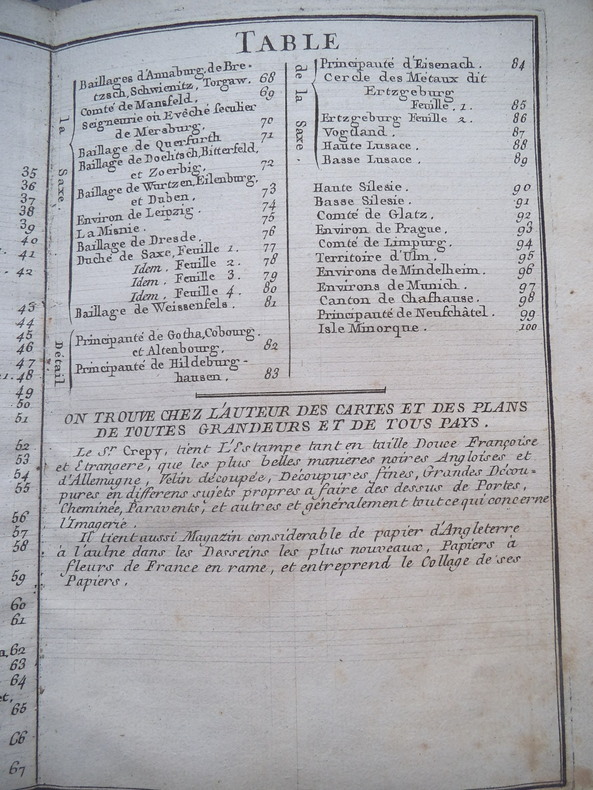 35
36
37
38
39
40
41
42
43
44
45
46
47
48
49
50
51
52
53
54
55
56
57
58
59
60
61
62
63
64
65
66
67
TABLE
la Saxe.
Baillages d'Annaburg, de Bre-
tzsch, Schwienitz, Torgaw. 68
Comté de Mansfeld. 69
Seigneurie ou Evêché seculier
de Mersburg. 70
Baillage de Querfurth 71
Baillage de Doelitsch, Bitterfeld,
et Zoerbig. 72
Baillage de Wurtzen, Eilenburg,
et Duben. 73
Environ de Leipzig. 74
La Misnie. 75
Baillage de Dresde. 76
Duché de Saxe, Feuille 1. 77
Idem. Feuille 2. 78
Idem. Feuille 3. 79
Idem. Feuille 4. 80
Baillage de Weissenfels. 81
Détail
Principauté de Gotha, Cobourg.
et Altenbourg. 82
Principauté de Hildeburg-
hausen. 83
de la Saxe.
Principauté d'Eisenach. 84
Cercle des Metaux dit
Ertzgeburg
Feuille 1. 85
Ertzgeburg Feuille 2. 86
Vogtland. 87
Haute Lusace. 88
Basse Lusace. 89
Haute Silesie. 90
Basse Silesie. 91
Comté de Glatz. 92
Environ de Prague. 93
Comté de Limpurg. 94
Territoire d'Ulm. 95
Environs de Mindelheim. 96
Environs de Munich. 97
Canton de Chafhause. 98
Principauté de Neufchâtel. 99
Isle Minorque. 100
ON TROUVE CHEZ L'AUTEUR DES CARTES ET DES PLANS
DE TOUTES GRANDEURS ET DE TOUS PAYS.
Le Sr. Crepy, tient L'Estampe tant en taille Douce Françoise
et Etrangere, que les plus belles manières noires Angloises et
d'Allemagne, Velin découpée, Découpures fines, Grandes Décou=
pures en differens sujets propres a faire des dessus de Portes,
Cheminée, Paravents, et autres et généralement tout ce qui concerne
l'Imagerie.
Il tient aussi Magazin considerable de papier d'Angleterre
à l'aulne dans les Desseins les plus nouveaux, Papiers à
fleurs de France en rame, et entreprend le Collage de ses
Papiers.